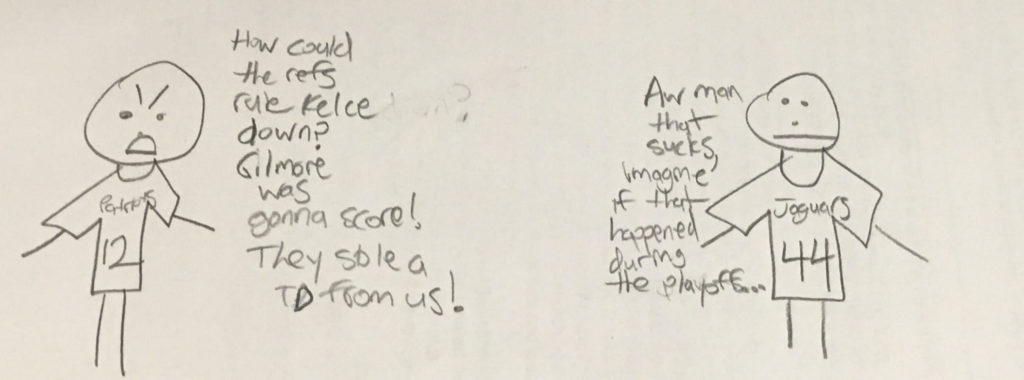 How could
the refs
rule Kelce
down?
Gilmore
was
gonna score!
They stole a
TD from us!
Patriots
12
Aw man
that
sucks,
imagine
if that
happened
during
the playoff...
Jaguars
44